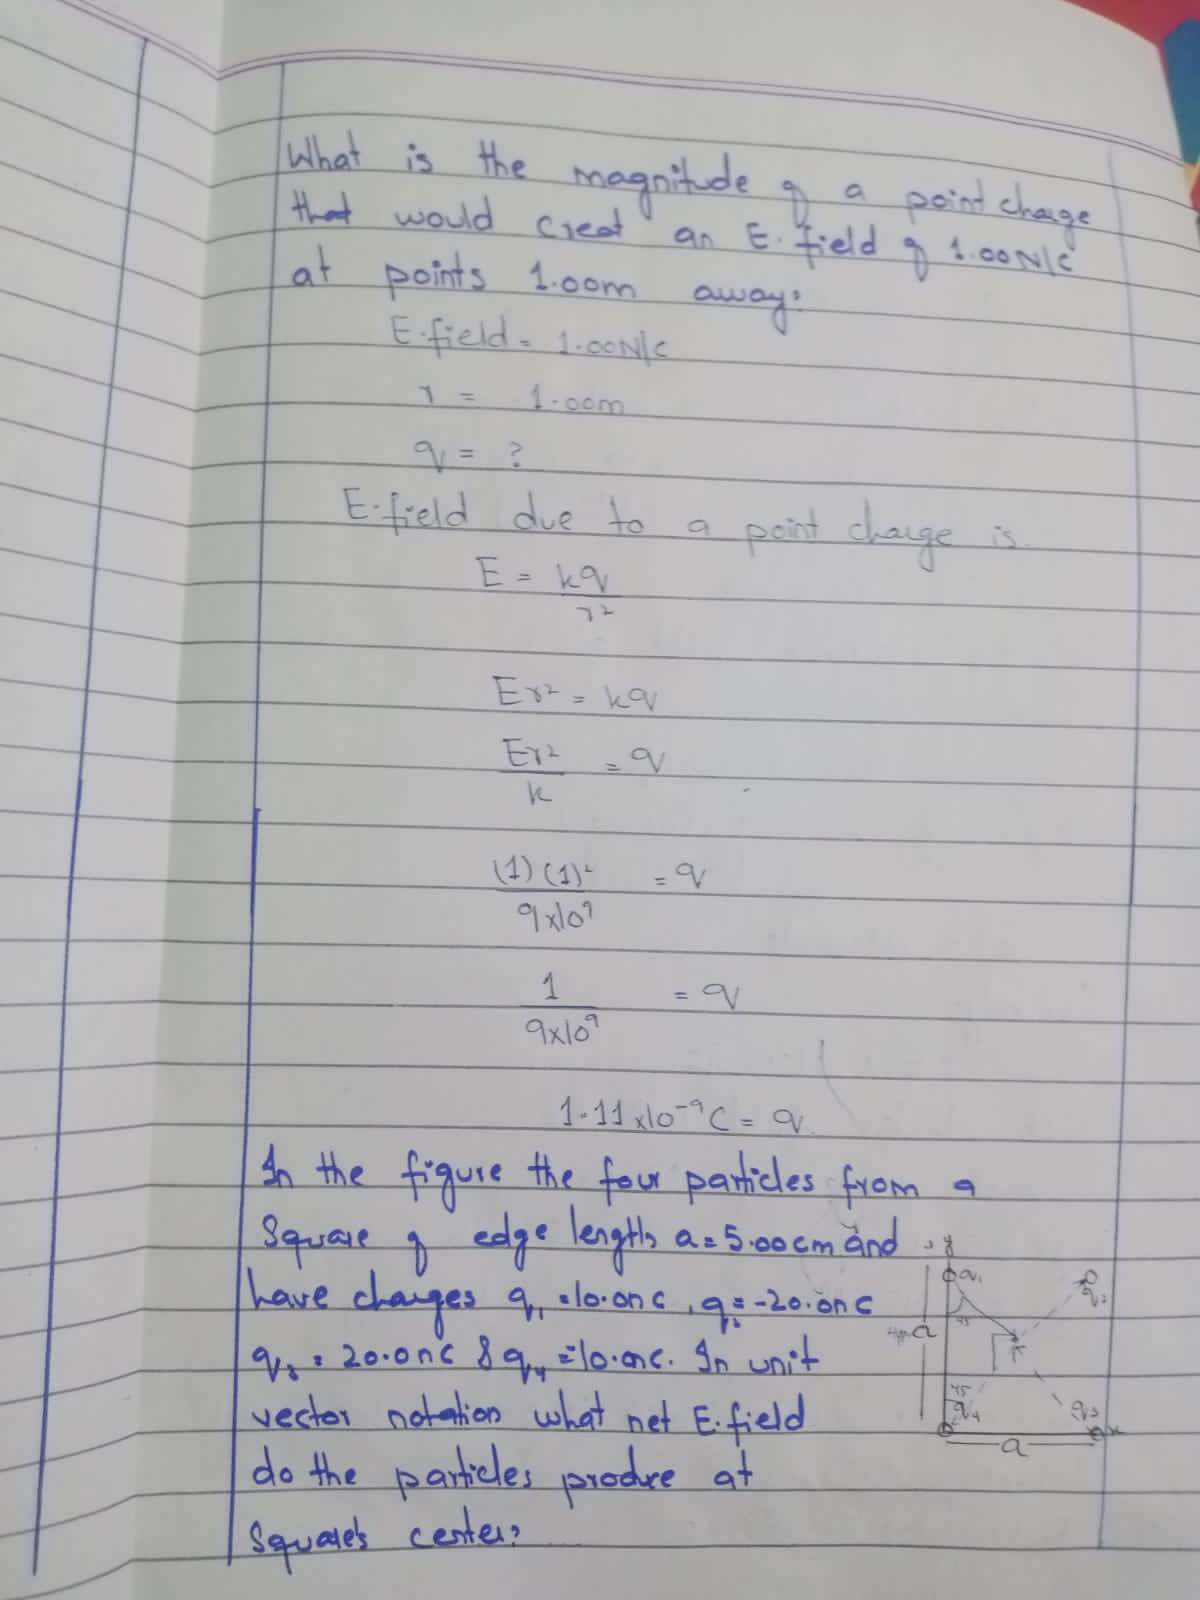 What is the magnitude of a point charge
that would creat an E.field of 1.00N/C
at points 1.00m away?
E.field = 1.00N/C
r = 1.00m
q = ?
E.field due to a point charge is
E = kq
r²
Er² = kq
Er² = q
k
(1)(1)² = q
9x10⁹
1 = q
9x10⁹
1.11x10⁻⁹C = q
In the figure the four particles from a
Square of edge length a = 5.00cm and
have charges q₁ = 10.0nC, q₂ = -20.0nC
q₃ = 20.0nC & q₄ = -10.0nC. In unit
vector notation what net E.field
do the particles produce at
Square's center?
y
q₁
q₂
45
a
45
q₄
q₃
x
a